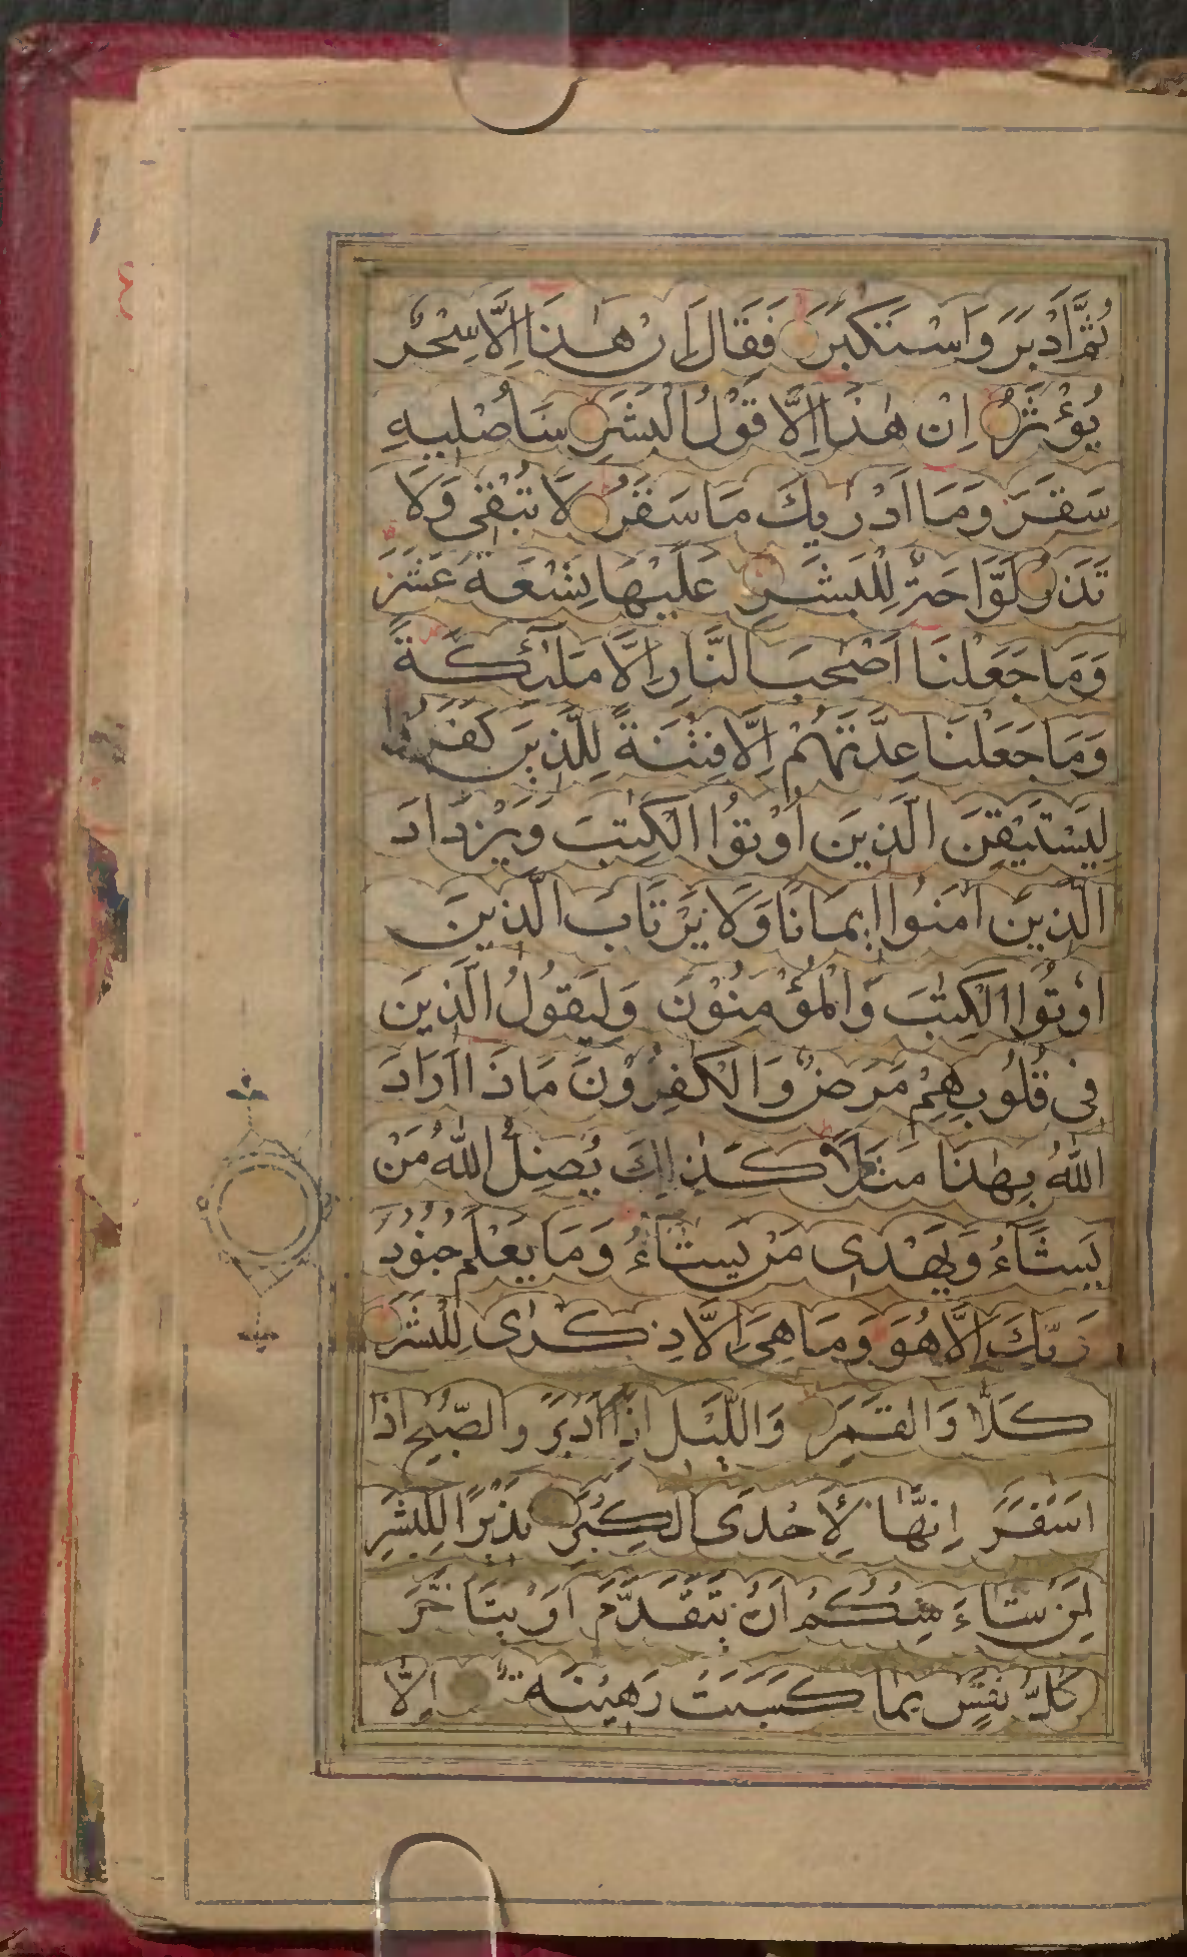 ثُمَّ اَدْبَرَ وَاسْتَكْبَرَ فَقَالَ اِنْ هٰذَا اِلَّا سِحْرٌ
يُؤْثَرُ اِنْ هٰذَا اِلَّا قَوْلُ الْبَشَرِ سَاُصْلِيهِ
سَقَرَ وَمَا اَدْرٰيكَ مَا سَقَرُ لَا تُبْقِى وَلَا
تَذَرُ لَوَّاحَةٌ لِلْبَشَرِ عَلَيْهَا تِسْعَةَ عَشَرَ
وَمَا جَعَلْنَا اَصْحٰبَ النَّارِ اِلَّا مَلٰئِكَةً
وَمَا جَعَلْنَا عِدَّتَهُمْ اِلَّا فِتْنَةً لِلَّذِينَ كَفَرُوا
لِيَسْتَيْقِنَ الَّذِينَ اُوْتُوا الْكِتٰبَ وَيَزْدَادَ
الَّذِينَ اٰمَنُوا اِيمَانًا وَلَا يَرْتَابَ الَّذِينَ
اُوْتُوا الْكِتٰبَ وَالْمُؤْمِنُوْنَ وَلِيَقُولَ الَّذِينَ
فِى قُلُوبِهِمْ مَرَضٌ وَالْكٰفِرُوْنَ مَاذَا اَرَادَ
اللهُ بِهٰذَا مَثَلًا كَذٰلِكَ يُضِلُّ اللهُ مَنْ
يَشَآءُ وَيَهْدِى مَنْ يَشَآءُ وَمَا يَعْلَمُ جُنُودَ
رَبِّكَ اِلَّا هُوَ وَمَا هِىَ اِلَّا ذِكْرٰى لِلْبَشَرِ
كَلَّا وَالْقَمَرِ وَاللَّيْلِ اِذْ اَدْبَرَ وَالصُّبْحِ اِذَا
اَسْفَرَ اِنَّهَا لَاِحْدَى الْكُبَرِ نَذِيْرًا لِلْبَشَرِ
لِمَنْ شَاءَ مِنْكُمْ اَنْ يَتَقَدَّمَ اَوْ يَتَاَخَّرَ
كُلُّ نَفْسٍ بِمَا كَسَبَتْ رَهِيْنَةٌ اِلَّا